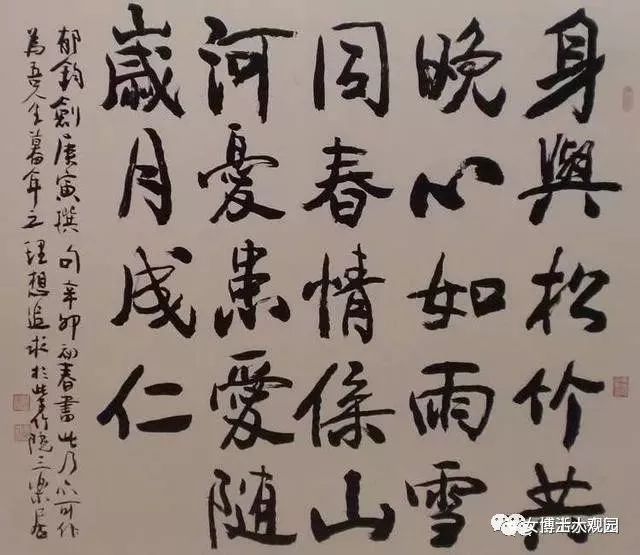 身與松竹共
晚心如雨雪
同春情係山
河憂患愛随
歲月成仁
郁鈞劍庚寅撰句辛卯初春書此乃亦可作
為吾人生暮年之理想追求於紫竹院三樂居
女博士大观园